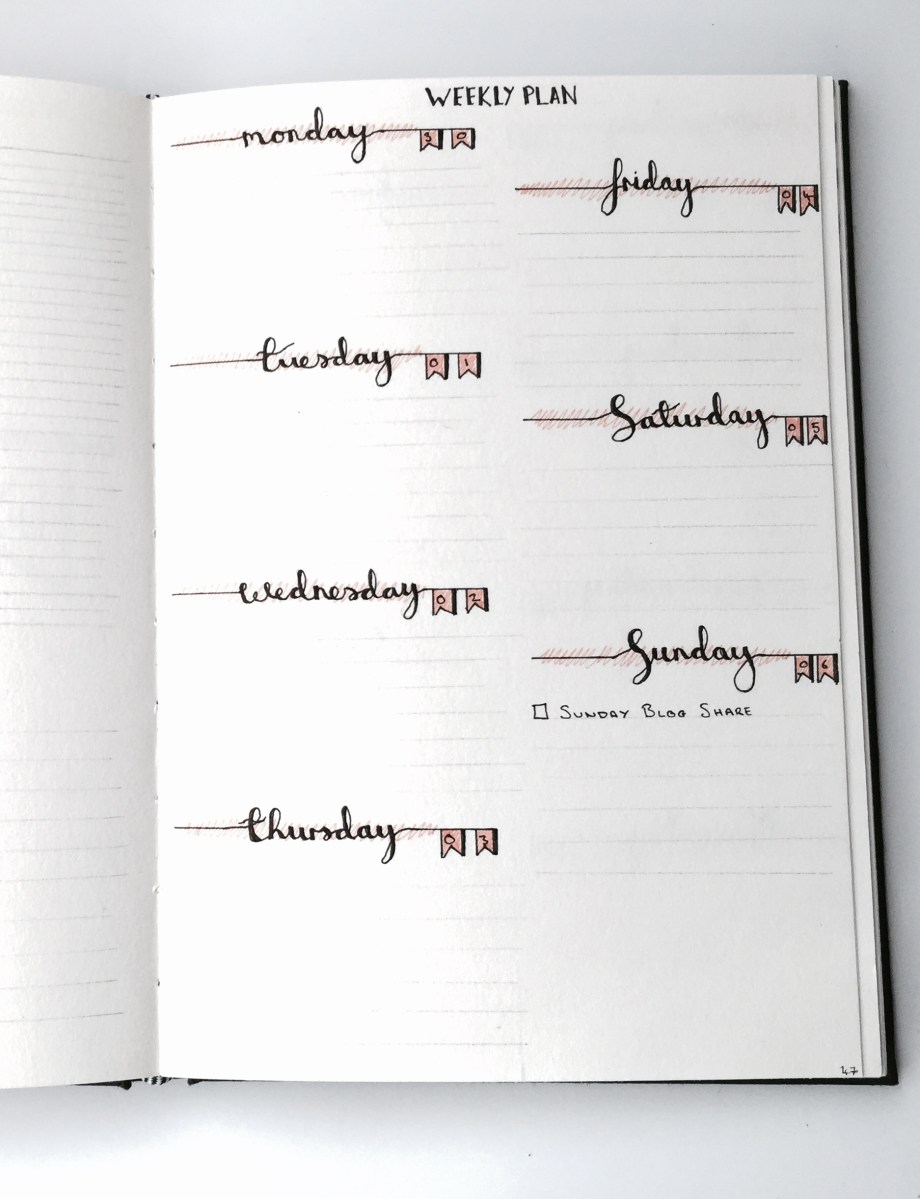 WEEKLY PLAN
monday 30
tuesday 01
wednesday 02
thursday 03
friday 04
Saturday 05
Sunday 06
SUNDAY BLOG SHARE
47